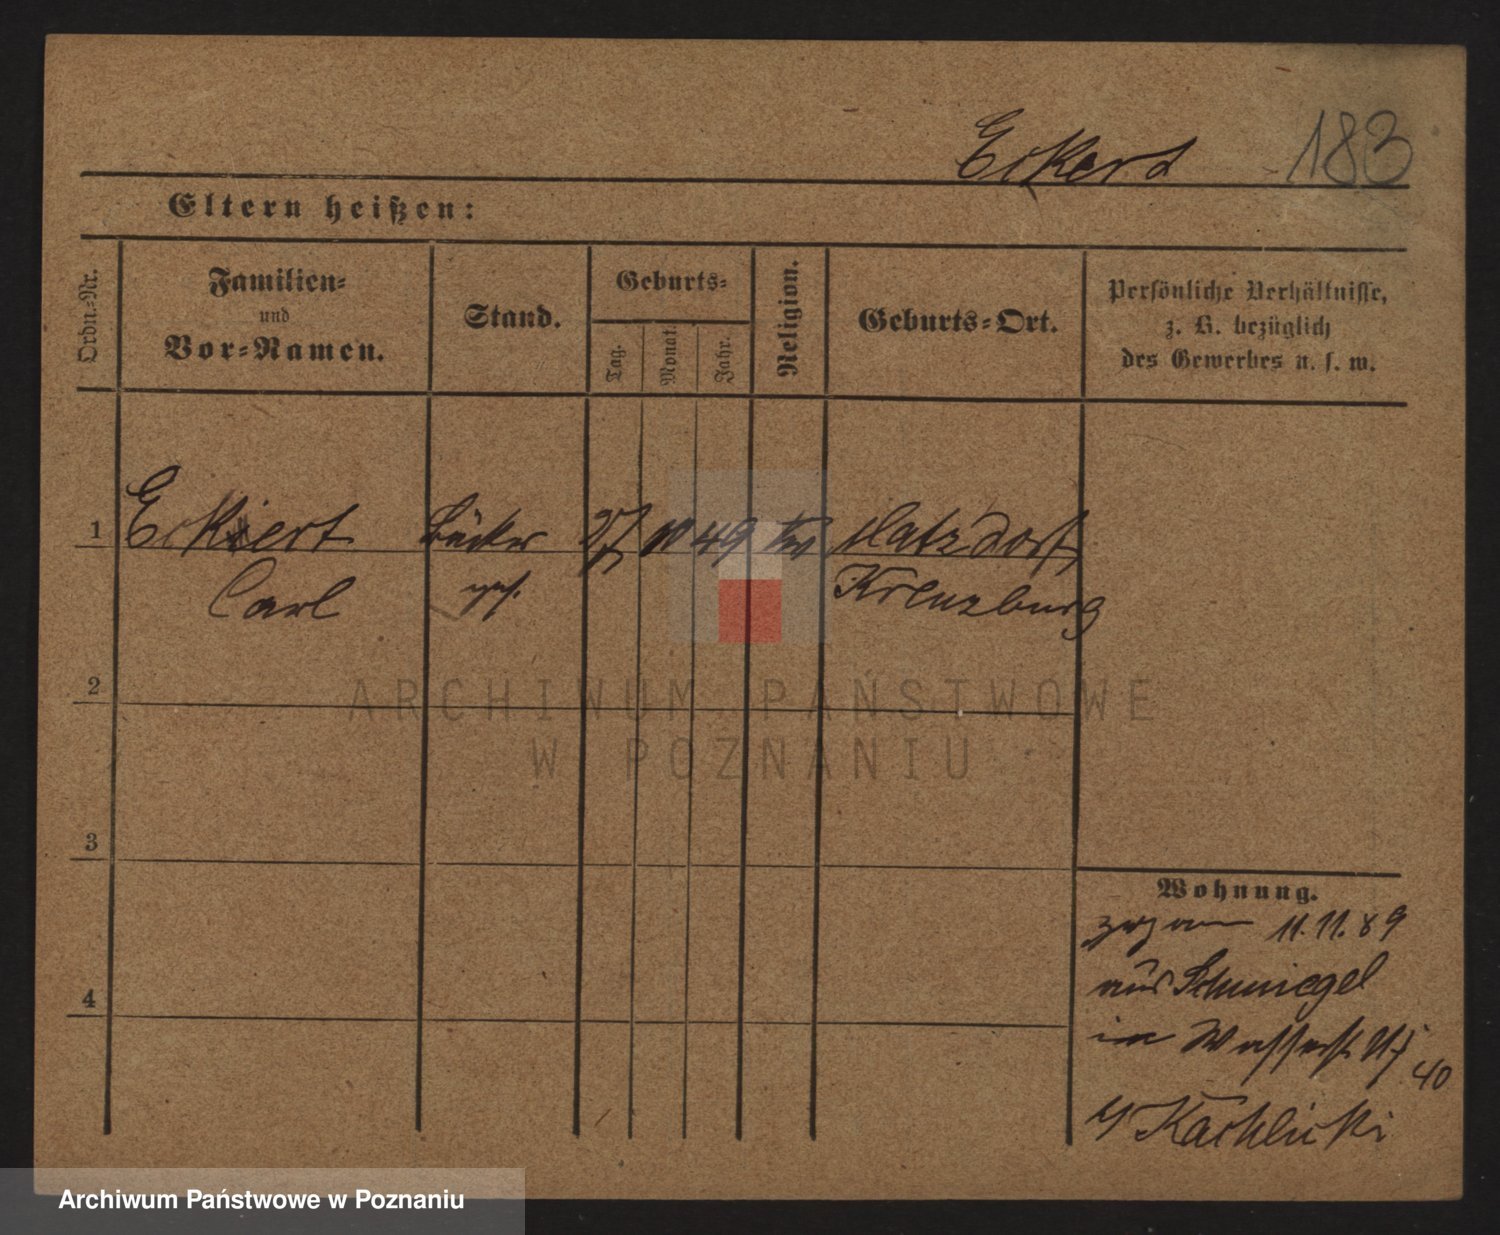 Eckert 183
Eltern heißen:
Ordn.-Nr.
Familien-
und
Vor-Namen.
Stand.
Geburts-
Tag.
Monat.
Jahr.
Religion.
Geburts-Ort.
Persönliche Verhältnisse,
z. B. bezüglich
des Gewerbes u. s. w.
1 Eckert Bäcker 27 10 49 Matzdorf
Carl ges. Kreuzburg
2
3
4
Wohnung.
zugzg am 11.11.89
aus Schmiegel
in Wasserstr.
40
Kachlicki
ARCHIWUM PAŃSTWOWE
W POZNANIU
Archiwum Państwowe w Poznaniu